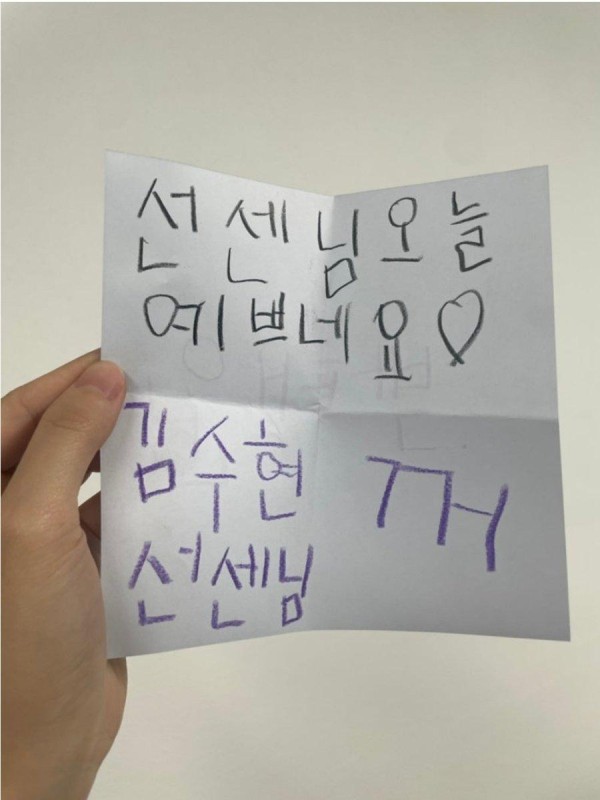 선센님오늘
예쁘네요♡
김수현
선센님
꺼